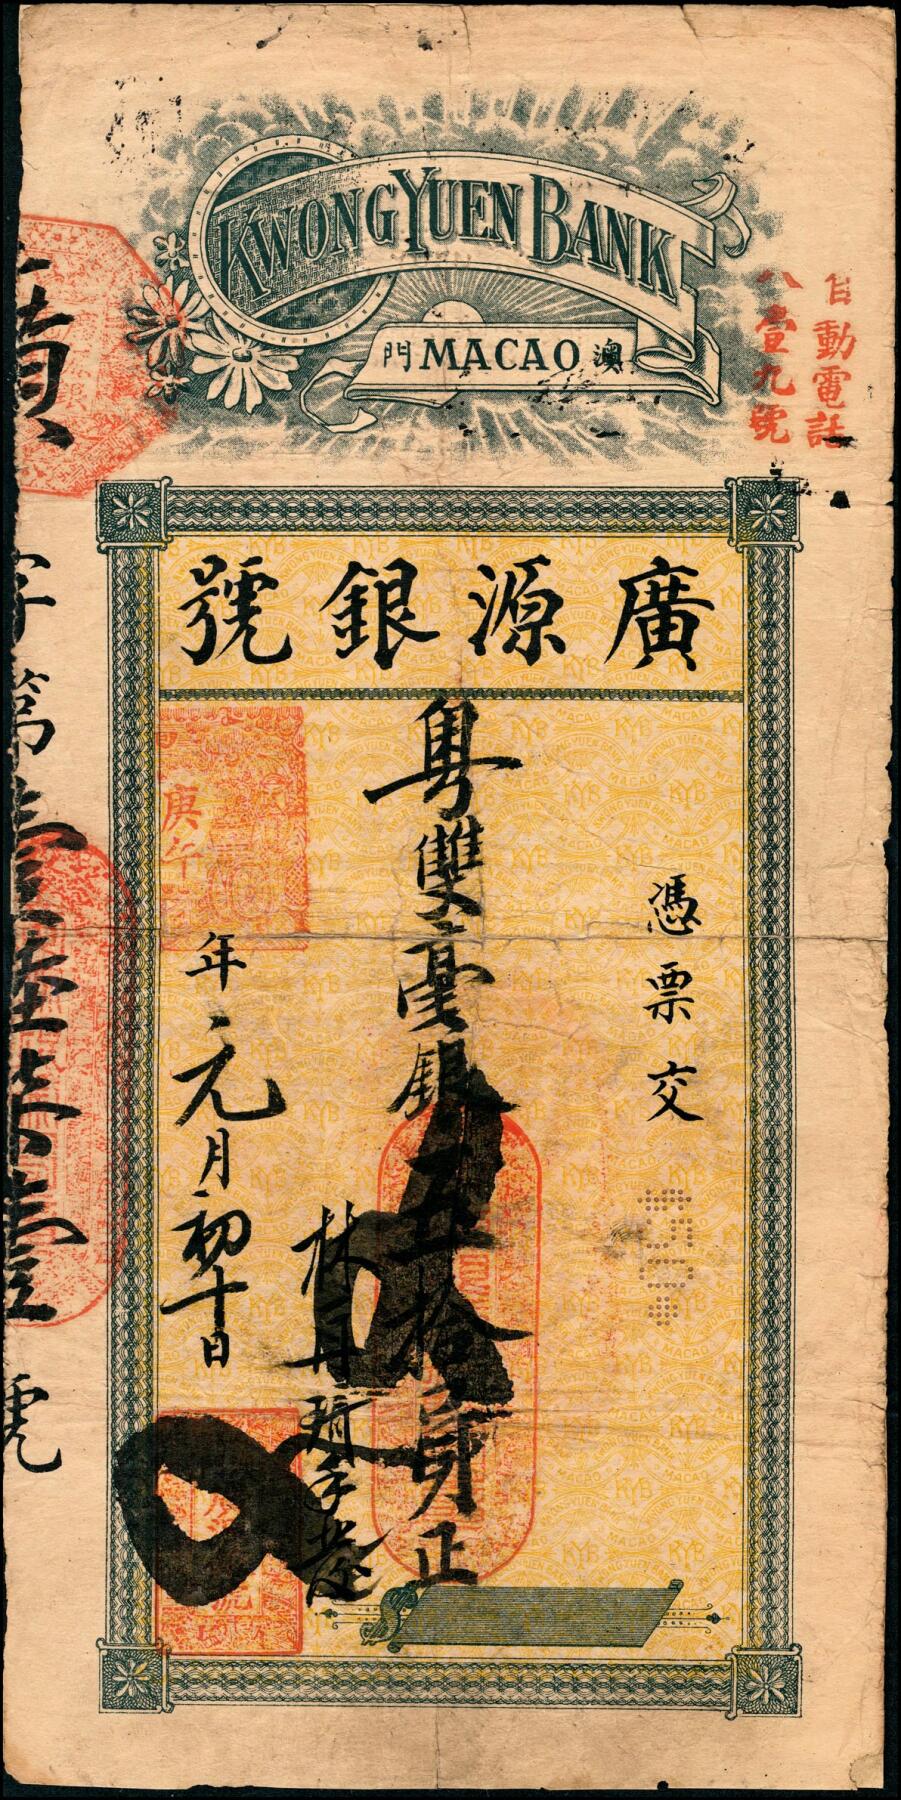 KWONG YUEN BANK
門 MACAO 澳
自動電話
八壹九號
號銀源廣
憑票交
粵雙毫銀五拾員正
庚午
年元月初十日
字第壹陸柒壹號